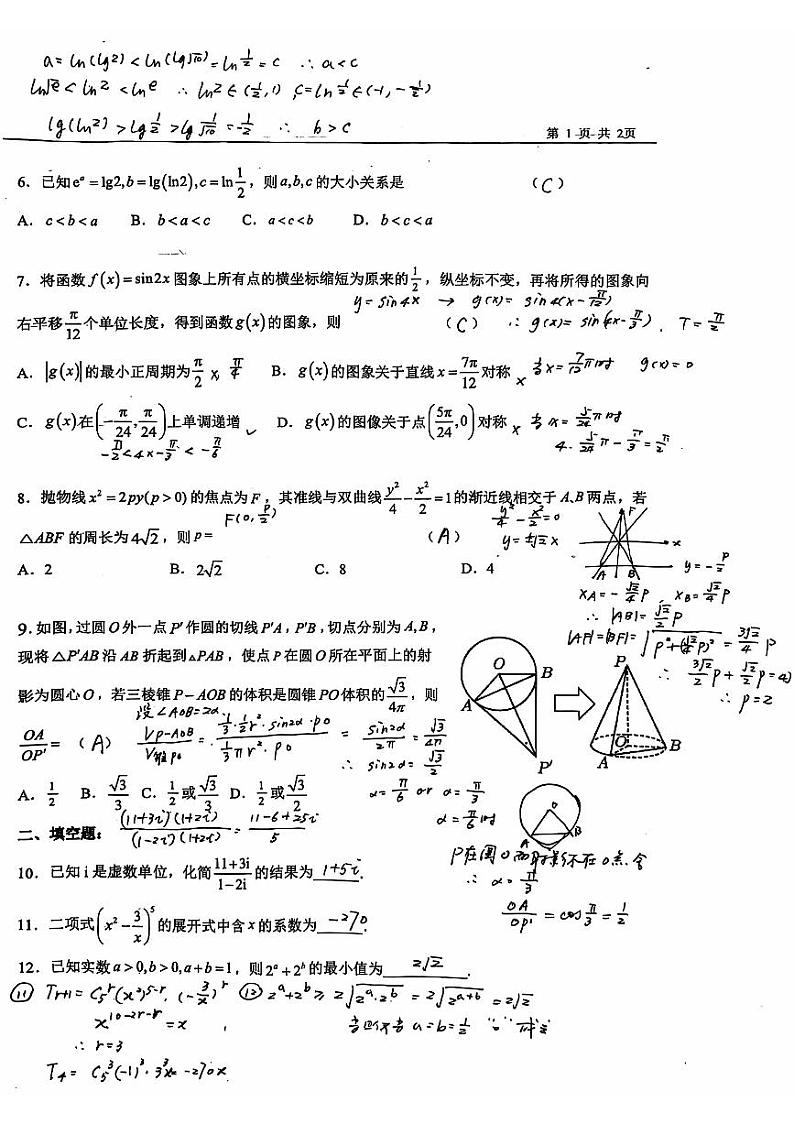 a = ln(lg2) < ln(lg√10) = ln 1/2 = c ∴ a < c
ln√e < ln2 < lne ∴ ln2 ∈ (1/2, 1) c = ln 1/2 ∈ (-1, -1/2)
lg(ln2) > lg 1/2 > lg 1/√10 = -1/2 ∴ b > c
第 1 页 共 2页
6. 已知eᵃ = lg2, b = lg(ln2), c = ln 1/2，则 a,b,c 的大小关系是 （C）
A. c < b < a B. b < a < c C. a < c < b D. b < c < a
7. 将函数 f(x) = sin2x 图象上所有点的横坐标缩短为原来的 1/2，纵坐标不变，再将所得的图象向
y = sin4x → g(x) = sin4(x - π/12)
右平移 π/12 个单位长度，得到函数 g(x) 的图象，则 （C） ∴ g(x) = sin(4x - π/3), T = π/2
A. |g(x)| 的最小正周期为 π/2 × π/4 B. g(x) 的图象关于直线 x = 7π/12 对称 × 当x = 7/12 π时 g(x) = 0
C. g(x) 在 (-π/24, π/24) 上单调递增 ✓ D. g(x) 的图像关于点 (5π/24, 0) 对称 × 当x = 5/24 π时
-π/2 < 4x - π/3 < -π/6 4·5/24 π - π/3 = π/2
8. 抛物线 x² = 2py(p > 0) 的焦点为 F，其准线与双曲线 y²/4 - x²/2 = 1 的渐近线相交于 A,B 两点，若
F(0, p/2) y²/4 - x²/2 = 0
△ABF 的周长为 4√2，则 p = （A） y = ±√2 x
A. 2 B. 2√2 C. 8 D. 4
F
x
A B y = -p/2
x_A = -√2/4 p, x_B = √2/4 p
∴ |AB| = √2/2 p
|AF| = |BF| = √(p² + (√2/4 p)²) = 3√2/4 p
∴ 3√2/2 p + √2/2 p = 4√2
∴ p = 2
9. 如图，过圆 O 外一点 P' 作圆的切线 P'A，P'B，切点分别为 A,B，
现将 △P'AB 沿 AB 折起到 △PAB，使点 P 在圆 O 所在平面上的射
影为圆心 O，若三棱锥 P - AOB 的体积是圆锥 PO 体积的 √3/4π，则
设∠AOB = 2α
OA/OP' = （A） V_{P-AOB}/V_{锥PO} = (1/3·1/2 r²·sin2α·PO)/(1/3 πr²·PO) = sin2α/2π = √3/4π
∴ sin2α = √3/2
α = π/6 or α = π/3
A. 1/2 B. √3/3 C. 1/2 或 √3/3 D. 1/2 或 √3/2
O B A P'
P O A B
α = π/6 时
O A B
P在圆O
∴ α = π/3
OA/OP' = cos π/3 = 1/2
二、填空题：
(11+3i)(1+2i)/(1-2i)(1+2i) = (11-6+25i)/5
10. 已知 i 是虚数单位，化简 (11+3i)/(1-2i) 的结果为 1+5i .
11. 二项式 (x² - 3/x)⁵ 的展开式中含 x 的系数为 -270 .
12. 已知实数 a > 0, b > 0, a + b = 1，则 2ᵃ + 2ᵇ 的最小值为 2√2 .
⑪ T_{r+1} = C₅ʳ(x²)^{5-r}·(-3/x)ʳ
x^{10-2r-r} = x
∴ r = 3
T₄ = C₅³(-1)³·3³x = -270x
⑫ 2ᵃ + 2ᵇ ≥ 2√(2ᵃ·2ᵇ) = 2√(2^{a+b}) = 2√2
当且仅当 a = b = 1/2 "="